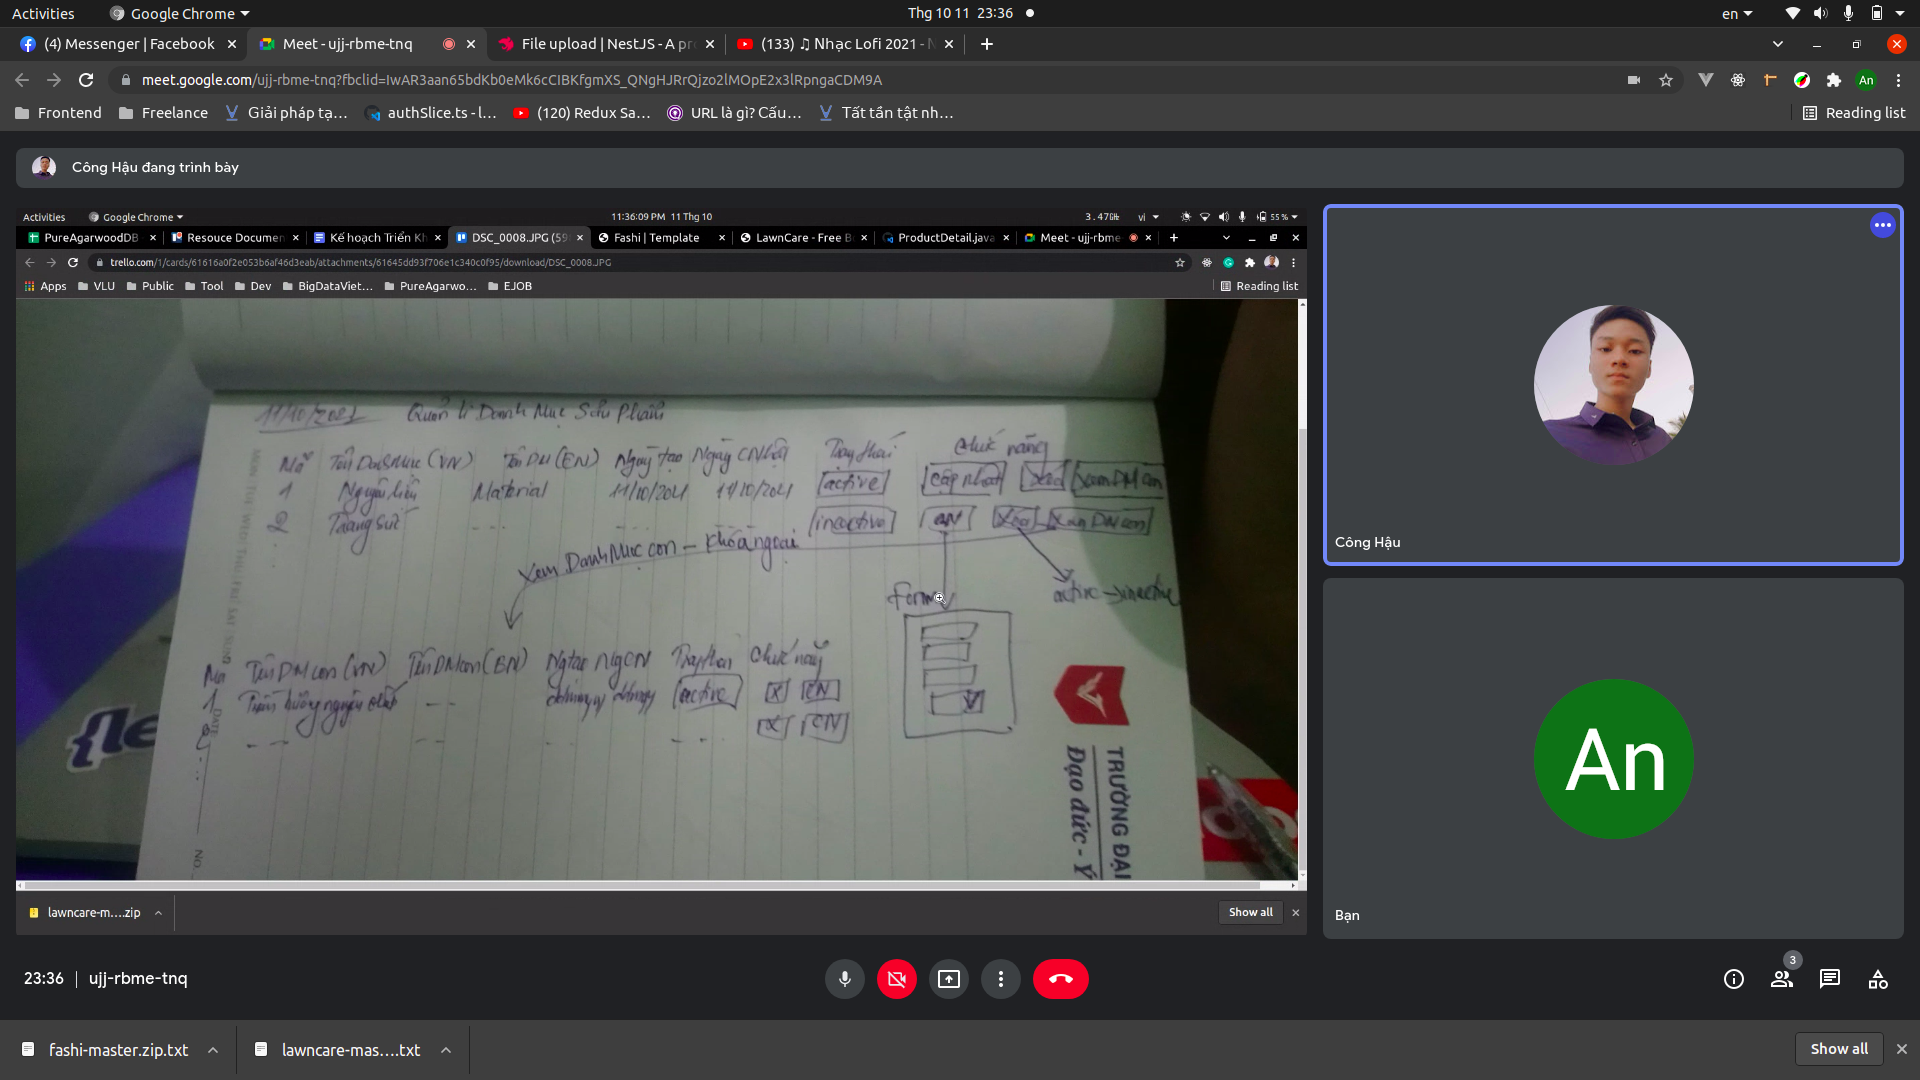 Activities Google Chrome Thg 10 11 23:36 en
(4) Messenger | Facebook Meet - ujj-rbme-tnq File upload | NestJS - A pr (133) ♫ Nhạc Lofi 2021 - N
meet.google.com/ujj-rbme-tnq?fbclid=IwAR3aan65bdKb0eMk6cCIBKfgmXS_QNgHJRrQjzo2lMOpE2x3lRpngaCDM9A An
Frontend Freelance Giải pháp tạ... authSlice.ts - l... (120) Redux Sa... URL là gì? Cấu... Tất tần tật nh... Reading list
Công Hậu đang trình bày
Activities Google Chrome 11:36:09 PM 11 Thg 10 3.47GHz vi 55 %
PureAgarwoodDB Resouce Documen Kế hoạch Triển Kh DSC_0008.JPG (59 Fashi | Template LawnCare - Free B ProductDetail.java Meet - ujj-rbme
trello.com/1/cards/61616a0f2e053b6af46d3eab/attachments/61645dd93f706e1c340c0f95/download/DSC_0008.JPG
Apps VLU Public Tool Dev BigDataViet... PureAgarwo... EJOB Reading list
11/10/2021 Quản lí Danh Mục Sản Phẩm
Mã Tên Danh Mục (VN) Tên DM (EN) Ngày tạo Ngày CNhật Trạng thái Chức năng
1 Nguyên liệu Material 11/10/2021 11/10/2021 active Cập nhật Xóa Xem DM con
2 Trang sức --- --- inactive CN Xóa Xem DM con
Xem Danh Mục con - khóa ngoại
Form active → inactive
Mã Tên DM con (VN) Tên DM con (EN) Ng tạo Ng CN Trạng thái Chức năng
1 -- active X CN
2 -- -- -- --- X CN
TRƯỜNG ĐẠI
Đạo đức - Ý
DATE
NO.
lawncare-m....zip Show all
Công Hậu
An
Bạn
23:36 | ujj-rbme-tnq 3
fashi-master.zip.txt lawncare-mas....txt Show all